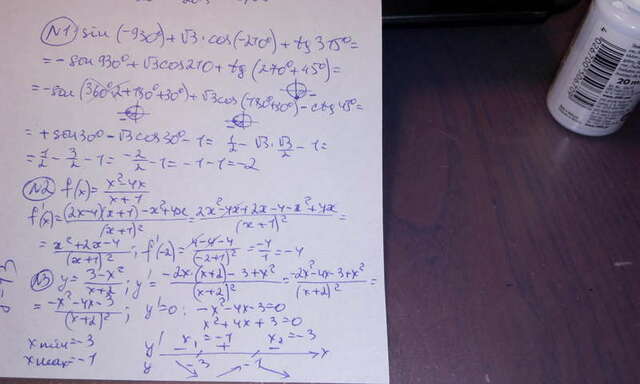 №1) sin (-930°) + √3 · cos(-210°) + tg 315° =
= - sin 930° + √3 cos 210 + tg (270° + 45°) =
= - sin (360°·2 + 180° + 30°) + √3 cos (180° + 30°) - ctg 45° =
= + sin 30° - √3 cos 30° - 1 = 1/2 - √3 · √3/2 - 1 =
= 1/2 - 3/2 - 1 = -2/2 - 1 = -1 - 1 = -2
№2 f(x) = (x² - 4x)/(x + 1)
f'(x) = ((2x-4)(x+1) - x² + 4x)/(x+1)² = (2x² - 4x + 2x - 4 - x² + 4x)/(x+1)² =
= (x² + 2x - 4)/(x+1)² ; f'(-2) = (4 - 4 - 4)/(-2+1)² = -4/1 = -4
№3 y = (3 - x²)/(x + 2) ; y' = (-2x·(x+2) - 3 + x²)/(x+2)² = (-2x² - 4x - 3 + x²)/(x+2)² =
= (-x² - 4x - 3)/(x+2)² ; y' = 0 : -x² - 4x - 3 = 0
x² + 4x + 3 = 0
x₁ = -1 x₂ = -3
x min = -3
x max = -1
y' - + - x
y -3 -1
20